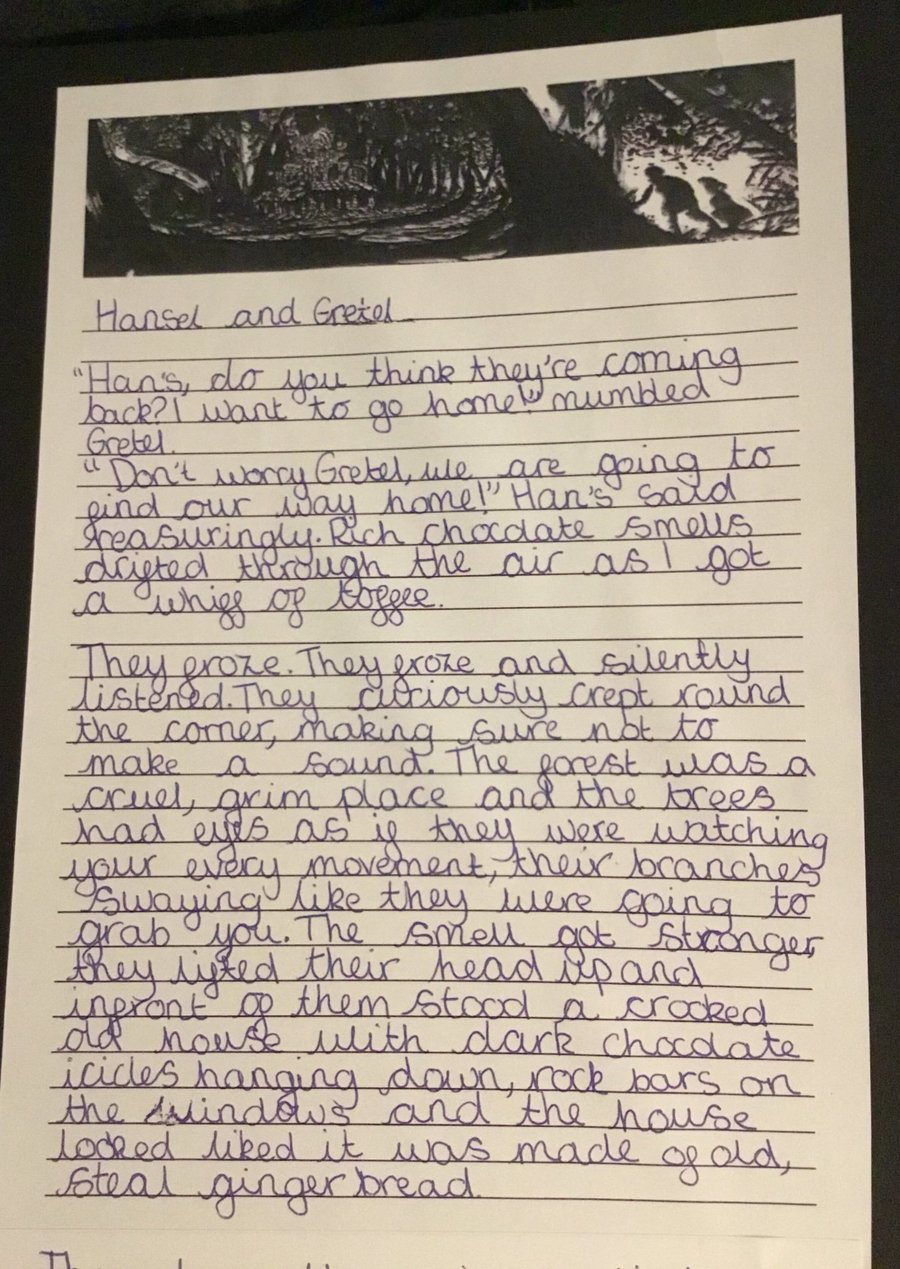 Hansel and Gretel
"Han's, do you think they're coming
back? I want to go home!" mumbled
Gretel.
"Don't worry Gretel, we are going to
find our way home!" Han's said
reasuringly. Rich chocdate smells
drifted through the air as I got
a whiff of toffee.
They froze. They froze and silently
listened. They curiously crept round
the corner, making sure not to
make a sound. The forest was a
cruel, grim place and the trees
had eyes as if they were watching
your every movement, their branches
swaying like they were going to
grab you. The smell got stronger,
they lifted their head up and
infront of them stood a crocked
old house with dark chocdate
icicles hanging down, rock bars on
the windows and the house
looked liked it was made of old,
steal gingerbread.